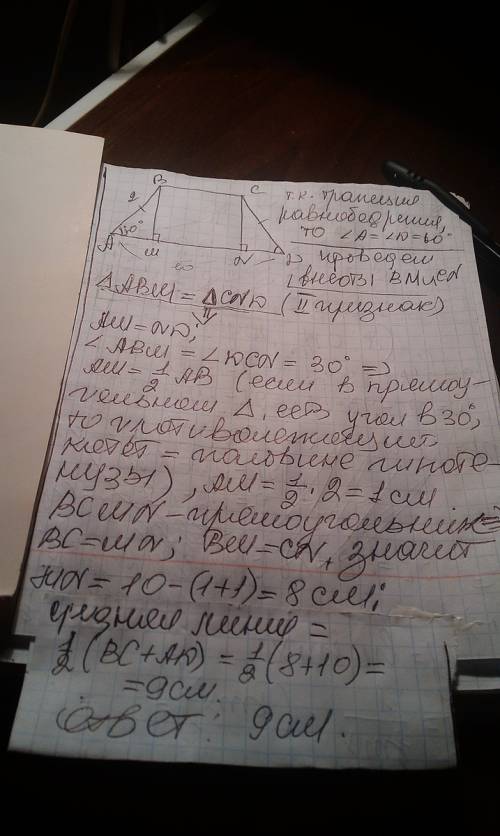 B C
2
60°
A M N D
10
т.к. трапеция
равнобедренная,
то ∠A=∠D=60°
проведем
высоты BM и CN
△ABM = △CND (II признак)
⇓
AM=ND;
∠ABM = ∠DCN = 30° ⇒
AM=1/2 AB (если в прямоу-
гольном △, есть угол в 30°,
то противолежащий
катет = половине гипоте-
нузы), AM=1/2·2=1см
BCMN-прямоугольник ⇒
BC=MN; BM=CN, значит
MN= 10-(1+1)= 8см;
средняя линия =
1/2(BC+AD) = 1/2(8+10)=
=9см
Ответ: 9см.